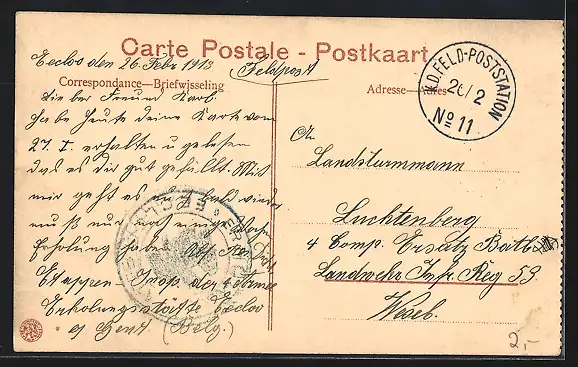 Carte Postale - Postkaart
Eecloo den 26. Febr 1915
Feldpost
Correspondance—Briefwisseling
Adresse—Adres
K.D. FELD-POSTSTATION
26/2
No 11
Lieber Freund Karl.
Habe heute deine Karte vom
27. I. erhalten u gelesen
das es dir gut gefällt. Mit
mir geht es auch bald wieder
muß nur noch einige
Erholung haben.
Etappen-Insp. der 4 Armee
Erholungsstätte Eecloo
bei Gent. (Belg.)
An
Landsturmmann
Luchtenberg
4 Comp. Ersatz Batl.
Landwehr Inf. Reg 53
Wesel.
2,-